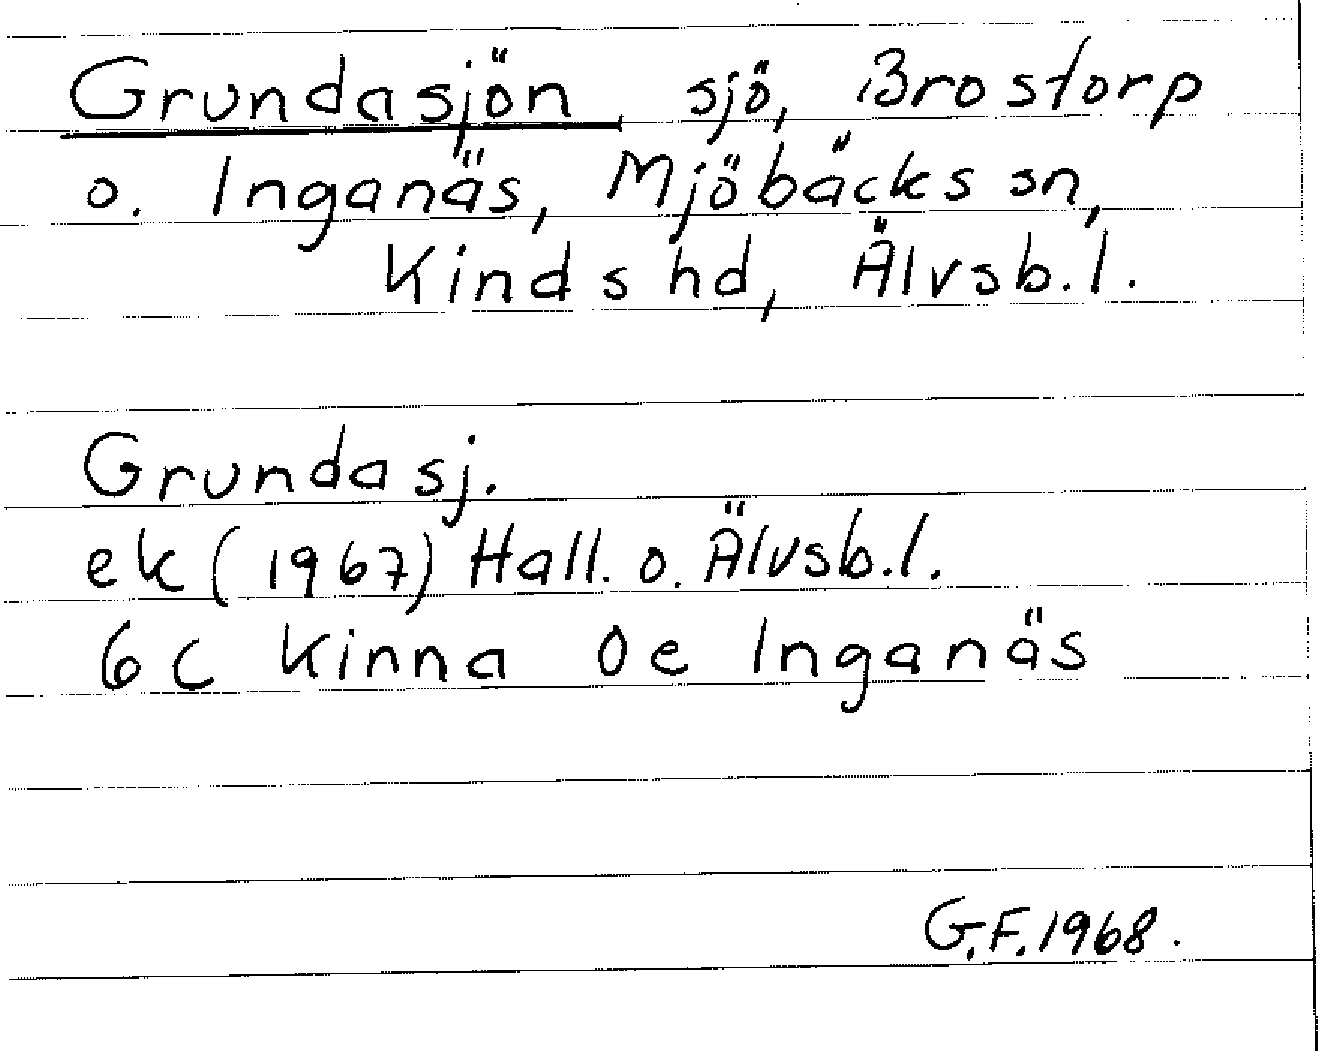 Grundasjön sjö, Brostorp
o. Inganäs, Mjöbäcks sn,
Kinds hd, Älvsb.l.
Grundasj.
ek (1967) Hall. o. Älvsb.l.
6C Kinna 0e Inganäs
G.F.1968.